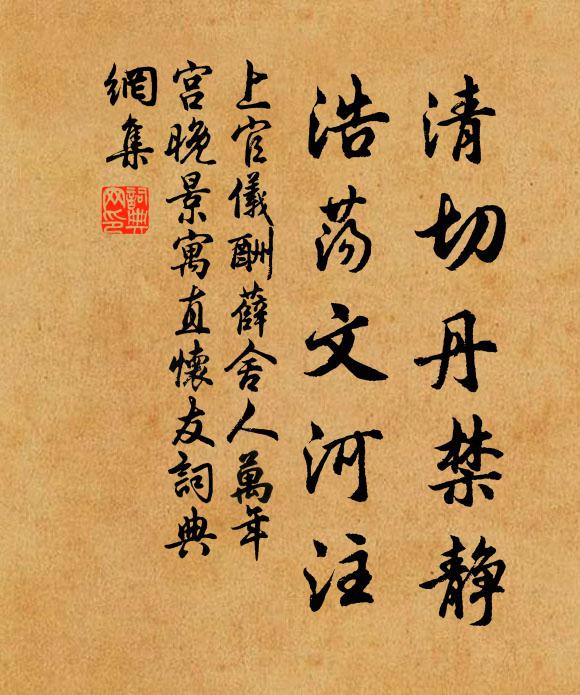 清切丹禁静
浩荡文河注
上官儀酬薛舍人萬年
宫晚景寓直懷友詞典
網集
詞典
网印